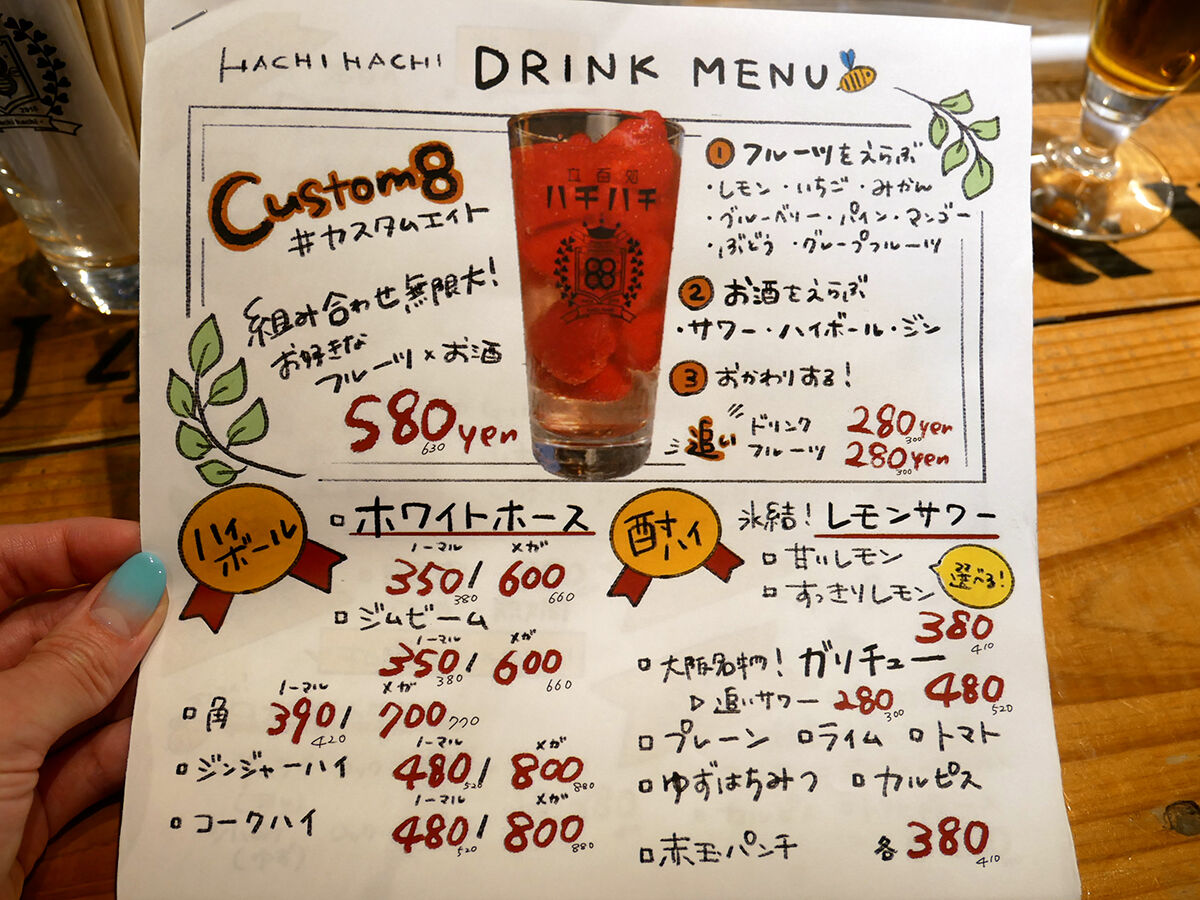 HACHI HACHI DRINK MENU
Custom8
#カスタムエイト
組み合わせ無限大!
お好きな
フルーツ×お酒
580yen
630
立百処
ハチハチ
88
① フルーツをえらぶ
・レモン・いちご・みかん
・ブルーベリー・パイン・マンゴー
・ぶどう・グレープフルーツ
② お酒をえらぶ
・サワー・ハイボール・ジン
③ おかわりする!
追い ドリンク 280yen
300
フルーツ 280yen
300
ハイボール
□ ホワイトホース
ノーマル メガ
350/ 600
380 660
□ ジムビーム
ノーマル メガ
350/ 600
380 660
ノーマル メガ
□ 角 390/ 700
420 770
ノーマル メガ
□ ジンジャーハイ 480/ 800
520 880
ノーマル メガ
□ コークハイ 480/ 800
520 880
酎ハイ
氷結!レモンサワー
□ 甘いレモン
□ すっきりレモン
選べる!
380
410
□ 大阪名物!ガリチュー
480
520
▷ 追いサワー 280
300
□ プレーン □ ライム □ トマト
□ ゆずはちみつ □ カルピス
□ 赤玉パンチ 各380
410
2018